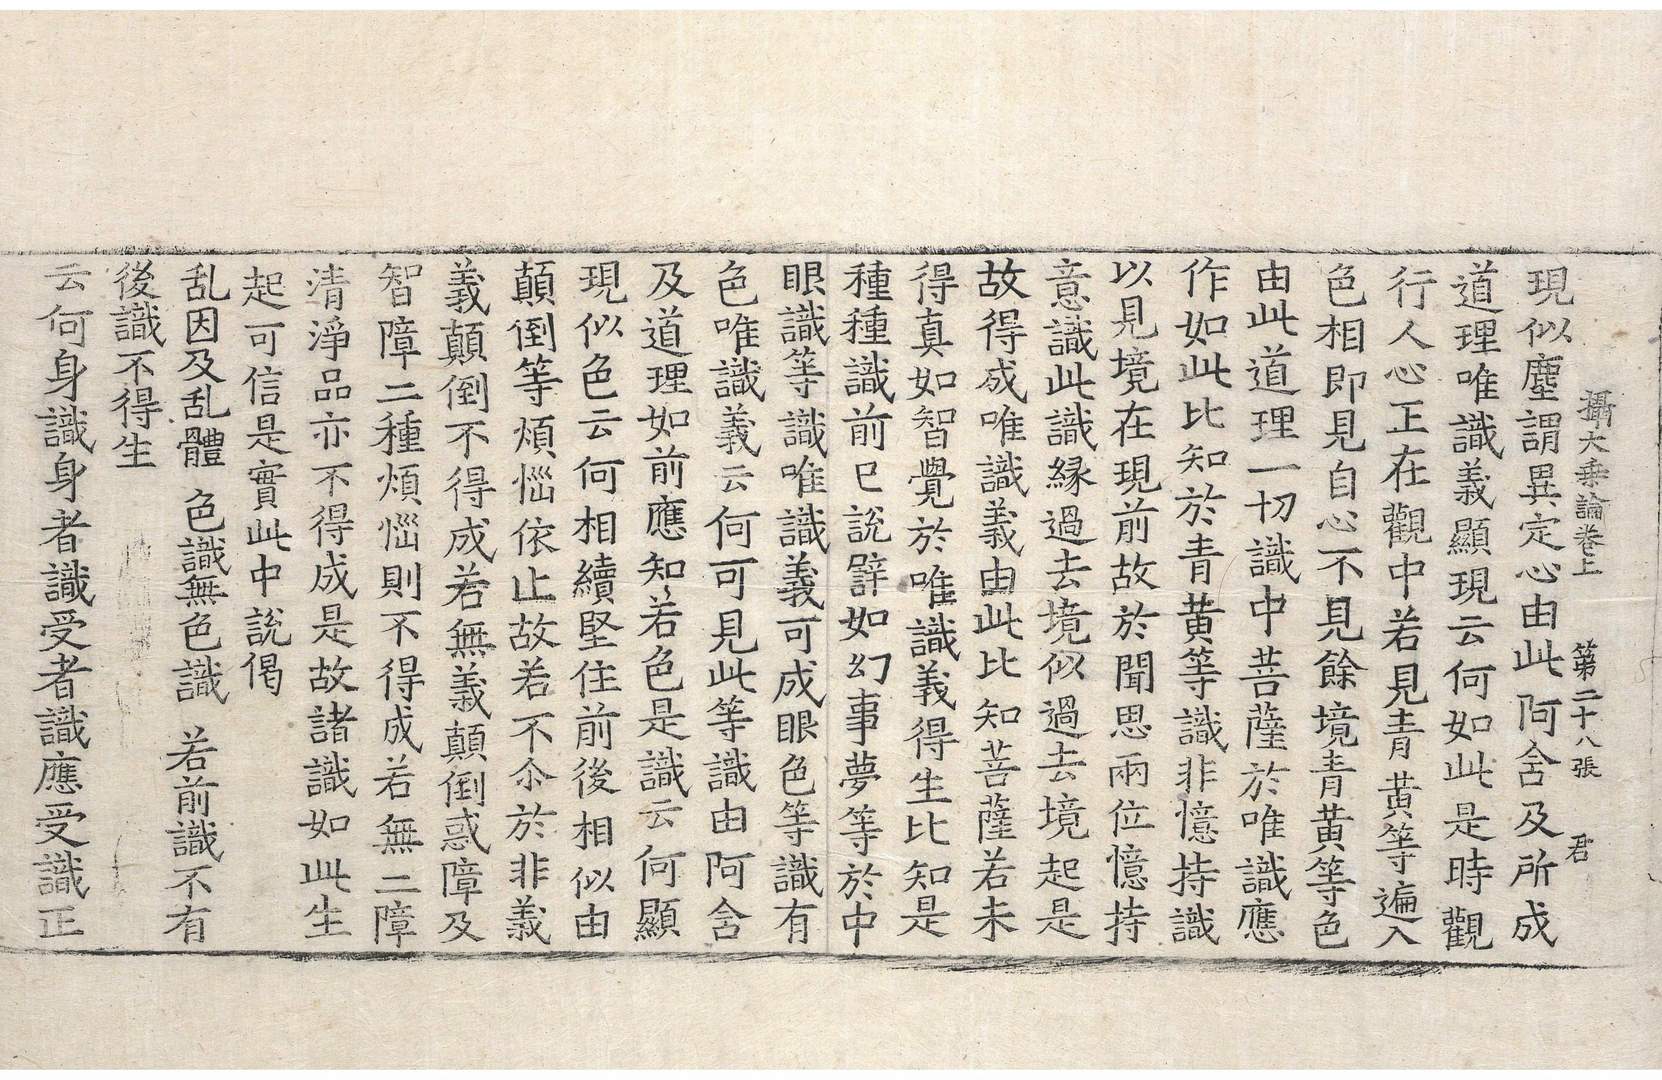 攝大乗論卷上 第二十八張 君
現似塵謂異定心由此阿含及所成
道理唯識義顯現云何如此是時觀
行人心正在觀中若見青黃等遍入
色相即見自心不見餘境青黃等色
由此道理一切識中菩薩於唯識應
作如此比知於青黃等識非憶持識
以見境在現前故於聞思兩位憶持
意識此識緣過去境似過去境起是
故得成唯識義由此比知菩薩若未
得真如智覺於唯識義得生比知是
種種識前已說譬如幻事夢等於中
眼識等識唯識義可成眼色等識有
色唯識義云何可見此等識由阿含
及道理如前應知若色是識云何顯
現似色云何相續堅住前後相似由
顛倒等煩惱依止故若不尒於非義
義顛倒不得成若無義顛倒惑障及
智障二種煩惱則不得成若無二障
清淨品亦不得成是故諸識如此生
起可信是實此中說偈
乱因及乱體 色識無色識 若前識不有
後識不得生
云何身識身者識受者識應受識正